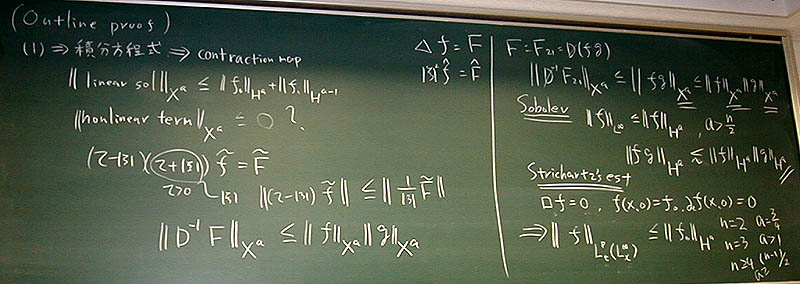 (Outline proof)
(1) ⇒ 積分方程式 ⇒ contraction map
‖ linear sol ‖_{X^a} ≤ ‖f_0‖_{H^a} + ‖f_1‖_{H^{a-1}}
‖nonlinear term‖_{X^a} ≤ ○ ?
(τ-|ξ|)(τ+|ξ|) f̃ = F̃
τ>0 |ξ| ‖(τ-|ξ|) f̃‖ ≤ ‖1/|ξ| F̃‖
‖D^{-1} F‖_{X^a} ≤ ‖f‖_{X^a} ‖g‖_{X^a}
△ f = F
|ξ|² f̂ = F̂
F = F_{21} = D(fg)
‖D^{-1} F_{21}‖_{X^a} ≤ ‖fg‖_{X^a} ≤ ‖f‖_{X^a} ‖g‖_{X^a}
Sobolev ‖f‖_{L^∞} ≤ ‖f‖_{H^a}, a > n/2
‖fg‖_{H^a} ≲ ‖f‖_{H^a} ‖g‖_{H^a}
Strichartz's est
□f = 0, f(x,0) = f_0, ∂f(x,0) = 0
⇒ ‖f‖_{L^p_t(L^∞_x)} ≤ ‖f_0‖_{H^a}
n=2 a=3/4
n=3 a>1
n≥4 a=(n-1)/2